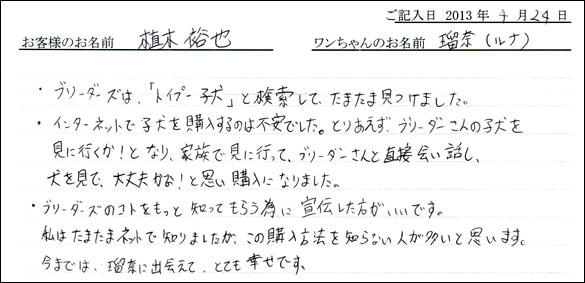 ご記入日 2013年 4月 24日
お客様のお名前 植木 裕也 ワンちゃんのお名前 瑠奈(ルナ)
・ブリーダーズは、「トイプー 子犬」と検索して、たまたま見つけました。
・インターネットで子犬を購入するのは不安でした。とりあえず、ブリーダーさんの子犬を
見に行くか!となり、家族で見に行って、ブリーダーさんと直接会い話し、
犬を見て、大丈夫かな!と思い購入になりました。
・ブリーダーズのコトをもっと知ってもらう為に宣伝した方がいいです。
私はたまたまネットで知りましたが、この購入方法を知らない人が多いと思います。
今までは、瑠奈に出会えて、とても幸せです。